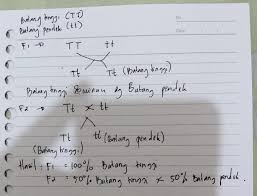 Batang tinggi (TT)
Batang pendek (tt)
No.
Date
F1 → TT tt
Tt Tt (Batang tinggi)
Batang tinggi Dominan dg Batang pendek
F2 → Tt x tt
Tt tt (Batang pendek)
(Batang tinggi)
Hasil : F1 = 100% Batang tinggi
F2 = 50% Batang tinggi x 50% Batang pendek.